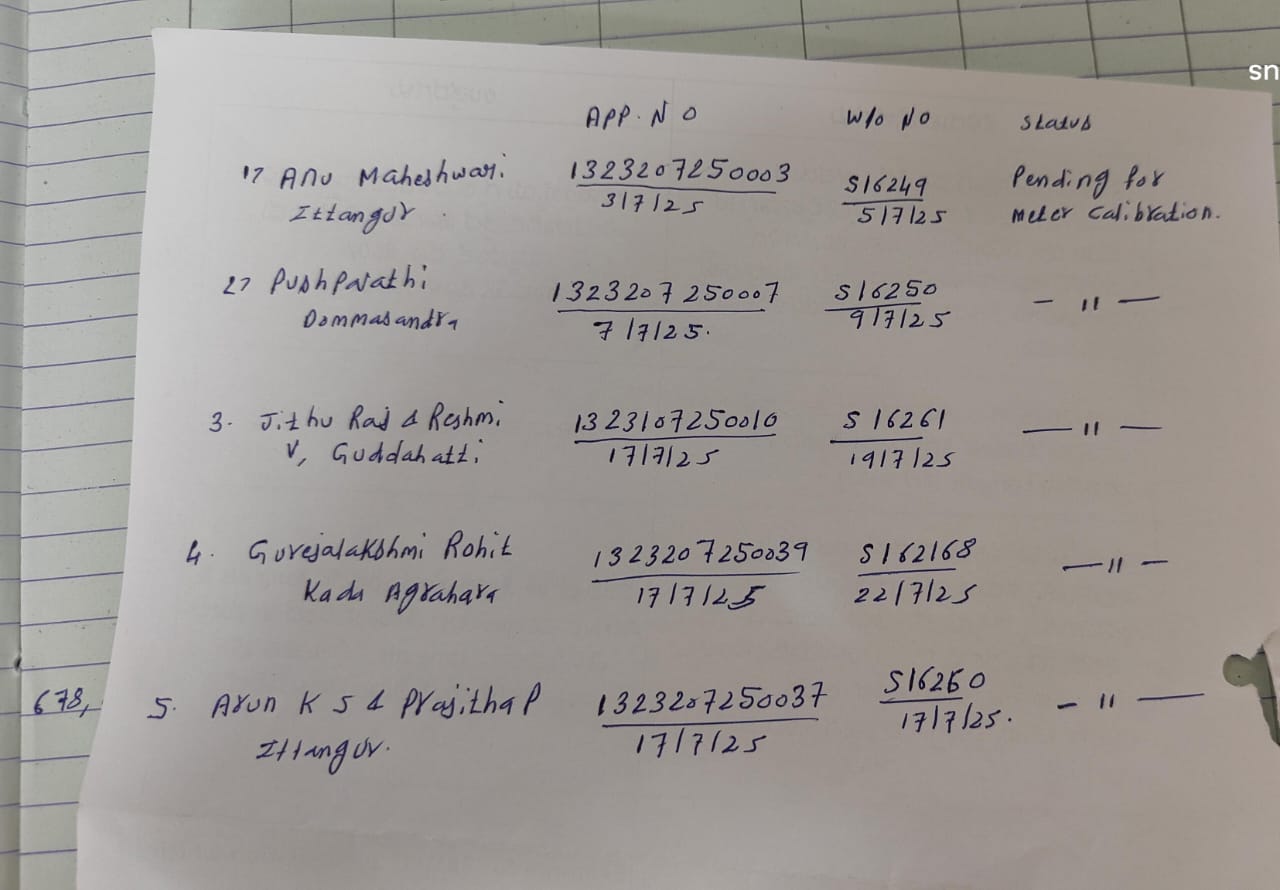 sn
APP. NO W/o NO Status
1) Anu Maheshwari. 1323207250003 S16249 Pending for
Ittangur 3/7/25 5/7/25 meter calibration.
2) Pushparathi 1323207250007 S16250 — 〃 —
Dommasandra 7/7/25. 9/7/25
3. Jithu Raj & Reshmi 1323107250010 S 16261 — 〃 —
V, Guddahatti 17/7/25 19/7/25
4. Gurejalakshmi Rohit 1323207250039 S162168 — 〃 —
Kada Agrahara 17/7/25 22/7/25
678,
5. Arun K S & Prajitha P 1323207250037 S16260 — 〃 —
Ittangur. 17/7/25 17/7/25.